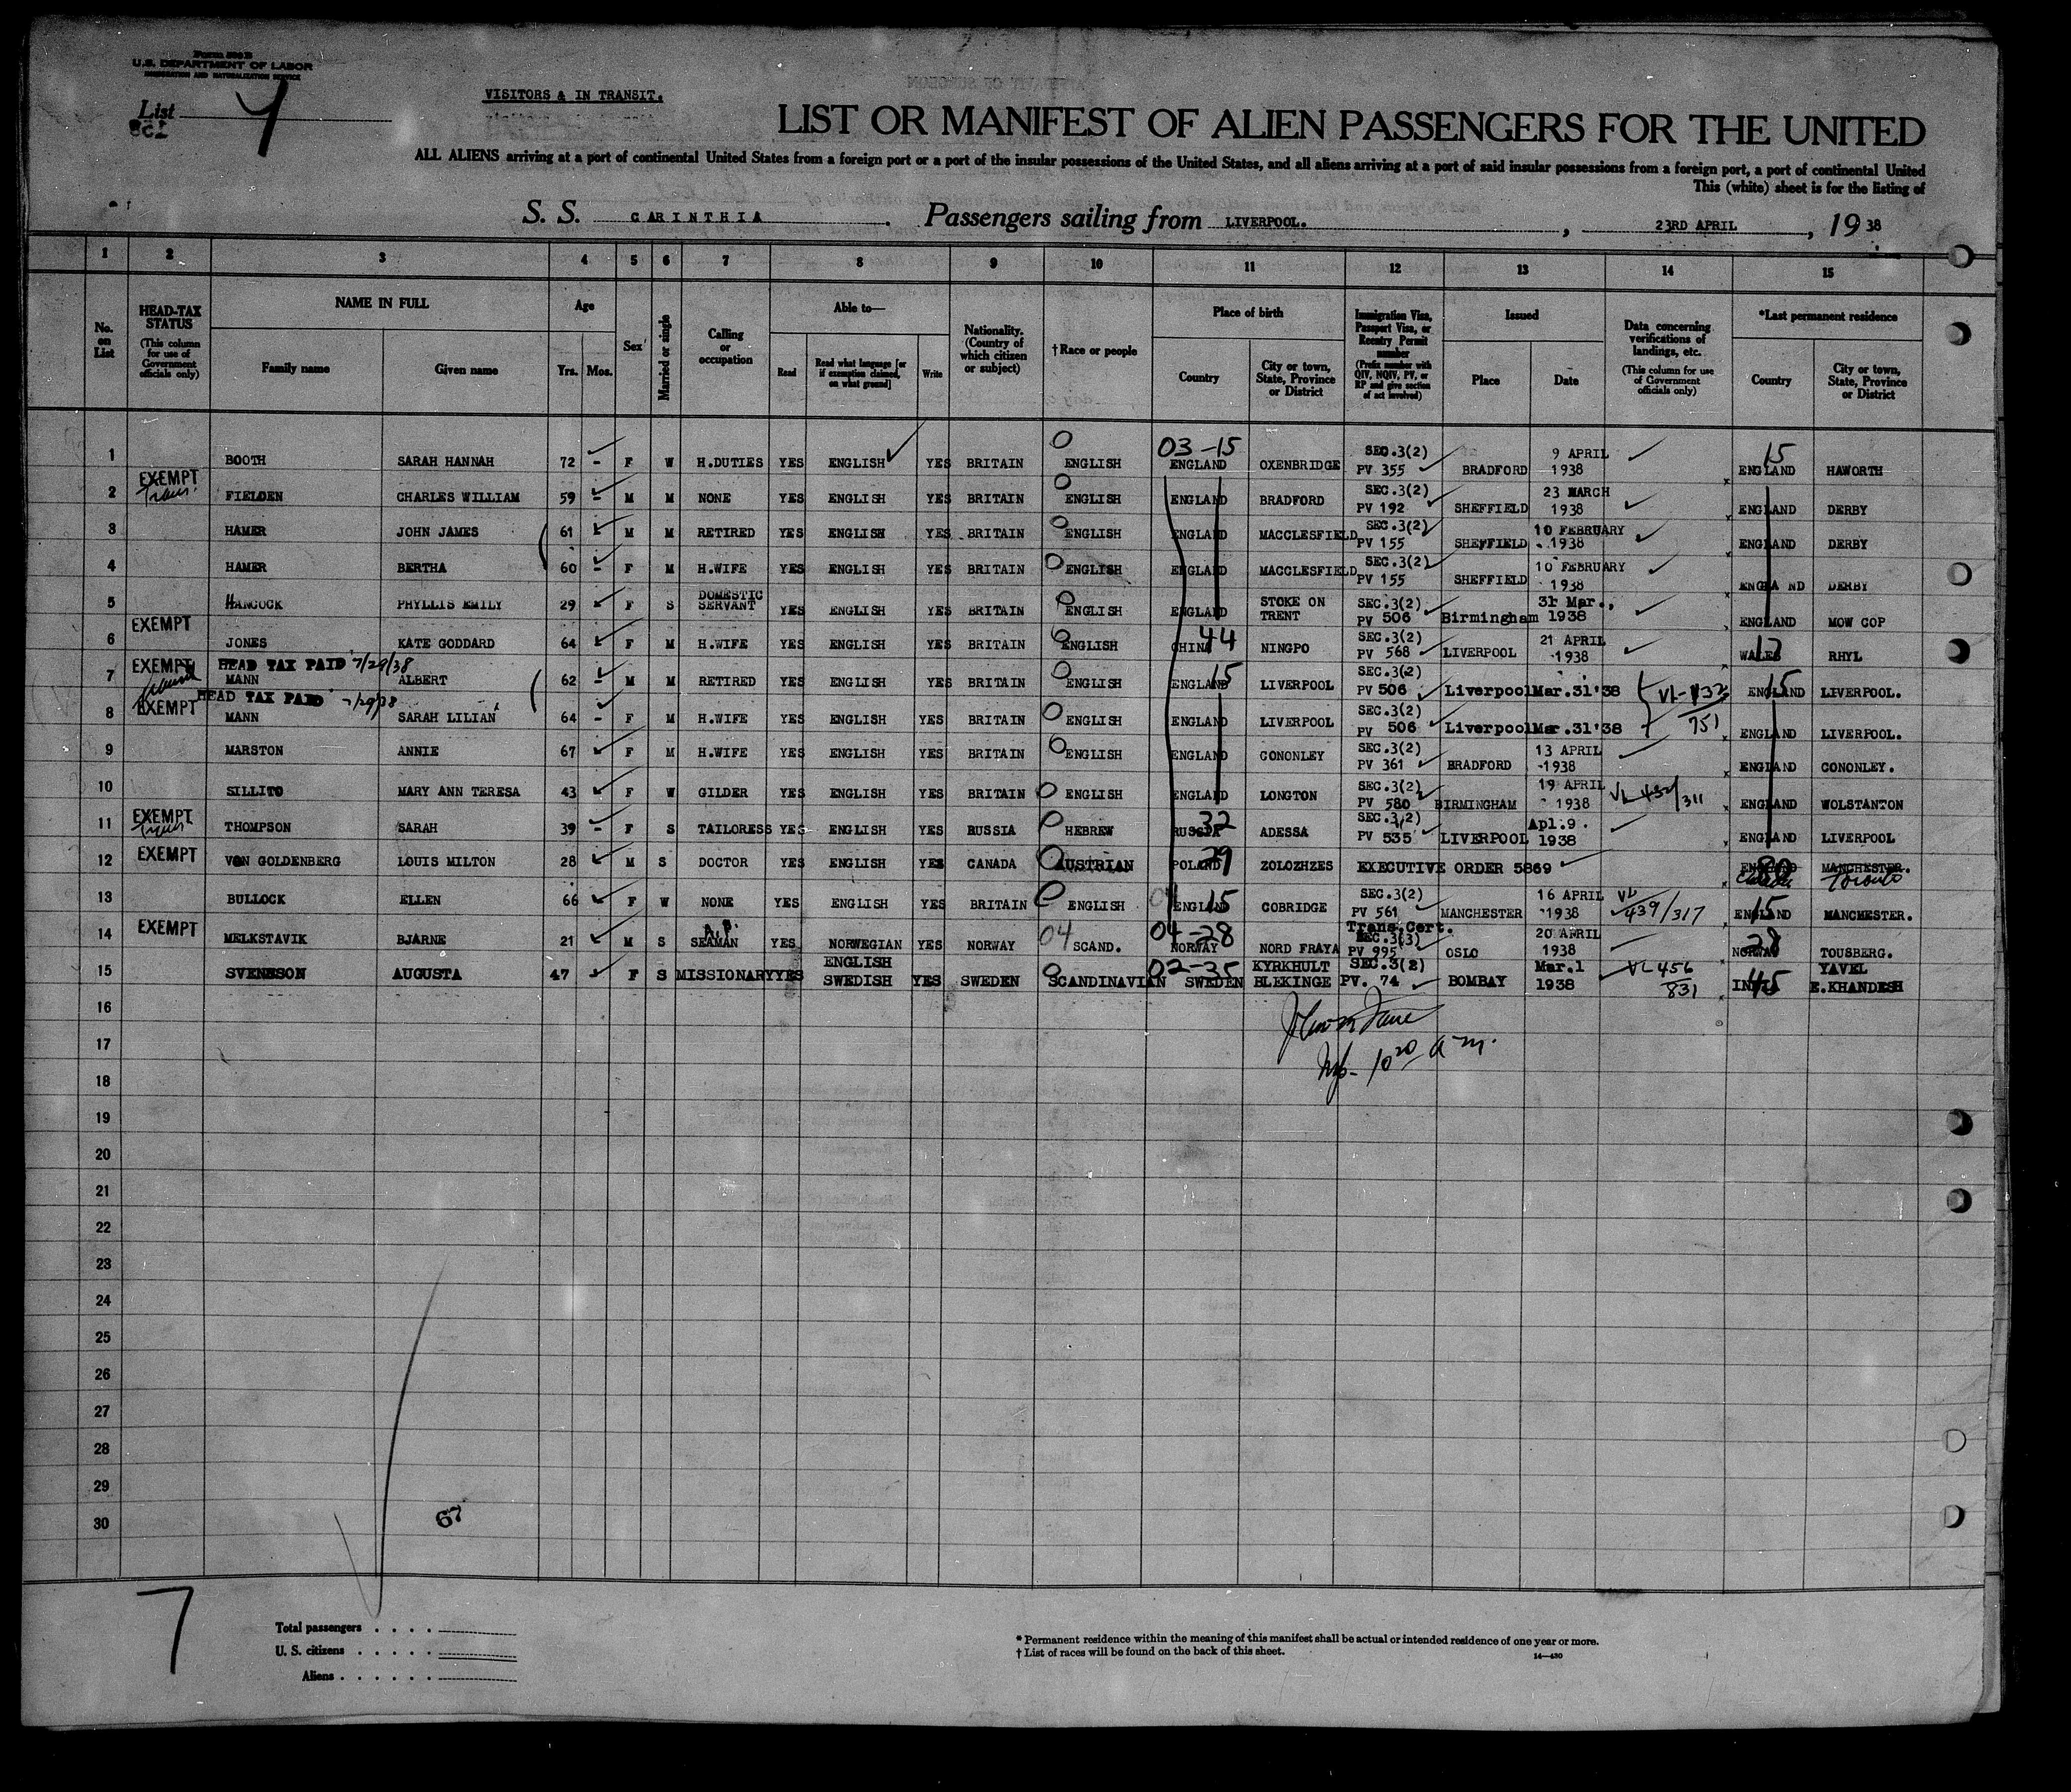 Form 500 B
U.S. DEPARTMENT OF LABOR
IMMIGRATION AND NATURALIZATION SERVICE
VISITORS & IN TRANSIT.
List 4
LIST OR MANIFEST OF ALIEN PASSENGERS FOR THE UNITED
ALL ALIENS arriving at a port of continental United States from a foreign port or a port of the insular possessions of the United States, and all aliens arriving at a port of said insular possessions from a foreign port, a port of continental United
This (white) sheet is for the listing of
S. S. CARINTHIA. Passengers sailing from LIVERPOOL. , 23RD APRIL , 19 38
1 2 3 4 5 6 7 8 9 10 11 12 13 14 15
No. on List
HEAD-TAX STATUS (This column for use of Government officials only)
NAME IN FULL
Family name Given name
Age
Yrs. Mos.
Sex
Married or single
Calling or occupation
Able to—
Read Read what language [or if exemption claimed, on what ground] Write
Nationality. (Country of which citizen or subject)
†Race or people
Place of birth
Country City or town, State, Province or District
Immigration Visa, Passport Visa, or Reentry Permit number (Prefix number with QIV, NQIV, PV, or RP and give section of act involved)
Issued
Place Date
Data concerning verifications of landings, etc. (This column for use of Government officials only)
*Last permanent residence
Country City or town, State, Province or District
1 BOOTH SARAH HANNAH 72 - F W H.DUTIES YES ENGLISH YES BRITAIN O ENGLISH 03-15 ENGLAND OXENBRIDGE SEC.3(2) PV 355 BRADFORD 9 APRIL 1938 15 ENGLAND HAWORTH
2 EXEMPT Trans. FIELDEN CHARLES WILLIAM 59 - M M NONE YES ENGLISH YES BRITAIN O ENGLISH ENGLAND BRADFORD SEC.3(2) PV 192 SHEFFIELD 23 MARCH 1938 x ENGLAND DERBY
3 HAMER JOHN JAMES 61 M M RETIRED YES ENGLISH YES BRITAIN O ENGLISH ENGLAND MACCLESFIELD SEC.3(2) PV 155 SHEFFIELD 10 FEBRUARY 1938 x ENGLAND DERBY
4 HAMER BERTHA 60 - F M H.WIFE YES ENGLISH YES BRITAIN O ENGLISH ENGLAND MACCLESFIELD SEC.3(2) PV 155 SHEFFIELD 10 FEBRUARY 1938 x ENGLAND DERBY
5 HANCOCK PHYLLIS EMILY 29 F S DOMESTIC SERVANT YES ENGLISH YES BRITAIN O ENGLISH ENGLAND STOKE ON TRENT SEC.3(2) PV 506 Birmingham 31 Mar., 1938 x ENGLAND MOW COP
6 EXEMPT JONES KATE GODDARD 64 F M H.WIFE YES ENGLISH YES BRITAIN O ENGLISH 44 CHINA NINGPO SEC.3(2) PV 568 LIVERPOOL 21 APRIL 1938 WALES RHYL
7 EXEMPT HEAD TAX PAID 7/29/38 MANN ALBERT 62 - M M RETIRED YES ENGLISH YES BRITAIN O ENGLISH 15 ENGLAND LIVERPOOL SEC.3(2) PV 506 Liverpool Mar.31'38 15 ENGLAND LIVERPOOL.
8 EXEMPT HEAD TAX PAID 7/29/38 MANN SARAH LILIAN 64 - F M H.WIFE YES ENGLISH YES BRITAIN O ENGLISH ENGLAND LIVERPOOL SEC.3(2) PV 506 Liverpool Mar.31'38 751 x ENGLAND LIVERPOOL.
9 MARSTON ANNIE 67 F M H.WIFE YES ENGLISH YES BRITAIN O ENGLISH ENGLAND CONONLEY SEC.3(2) PV 361 BRADFORD 13 APRIL 1938 x ENGLAND CONONLEY.
10 SILLITO MARY ANN TERESA 43 F W GILDER YES ENGLISH YES BRITAIN O ENGLISH ENGLAND LONGTON SEC.3(2) PV 580 BIRMINGHAM 19 APRIL 1938 x ENGLAND WOLSTANTON
11 EXEMPT Trans THOMPSON SARAH 39 - F S TAILORESS YES ENGLISH YES RUSSIA O HEBREW 32 RUSSIA ADESSA SEC.3(2) PV 535 LIVERPOOL Apl.9. 1938 x ENGLAND LIVERPOOL
12 EXEMPT VON GOLDENBERG LOUIS MILTON 28 M S DOCTOR YES ENGLISH YES CANADA O AUSTRIAN 29 POLAND ZOLOZHZES EXECUTIVE ORDER 5869 80 ENGLAND Canada MANCHESTER. Toronto
13 BULLOCK ELLEN 66 F W NONE YES ENGLISH YES BRITAIN O ENGLISH 15 ENGLAND COBRIDGE SEC.3(2) PV 561 MANCHESTER 16 APRIL 1938 VL 439/317 15 ENGLAND MANCHESTER.
14 EXEMPT MELKSTAVIK BJARNE 21 M S SEAMAN YES NORWEGIAN YES NORWAY 04 SCAND. 04-28 NORWAY NORD FRAYA Trans.Cert. SEC.3(3) PV 995 OSLO 20 APRIL 1938 28 NORWAY TOUSBERG.
15 SVENSSON AUGUSTA 47 F S MISSIONARY YES ENGLISH SWEDISH YES SWEDEN O SCANDINAVIAN 02-35 SWEDEN KYRKHULT BLEKINGE SEC.3(2) PV. 74 BOMBAY Mar.1 1938 VL 456 831 45 INDIA YAVEL E.KHANDESH
16
17
10 20 a m.
18
19
20
21
22
23
24
25
26
27
28
29
30
67
7
Total passengers . . . .
U. S. citizens . . . . .
Aliens . . . . . .
* Permanent residence within the meaning of this manifest shall be actual or intended residence of one year or more.
† List of races will be found on the back of this sheet.
14—430